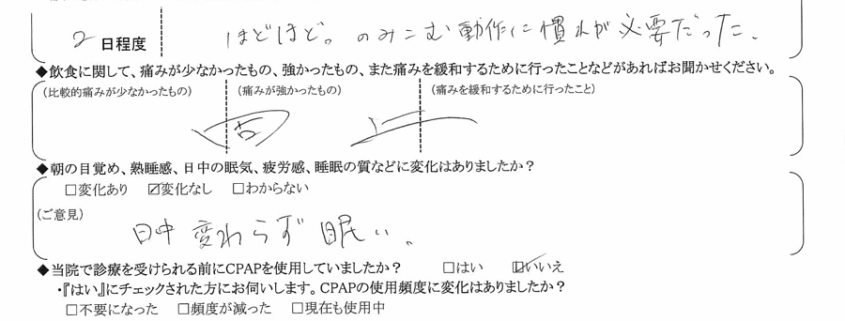 2 日程度 ほどほど。のみこむ動作に慣れが必要だった。
◆飲食に関して、痛みが少なかったもの、強かったもの、また痛みを緩和するために行ったことなどがあればお聞かせください。
(比較的痛みが少なかったもの) (痛みが強かったもの) (痛みを緩和するために行ったこと)
◆朝の目覚め、熟睡感、日中の眠気、疲労感、睡眠の質などに変化はありましたか?
□変化あり ☑変化なし □わからない
(ご意見)
日中変わらず眠い。
◆当院で診療を受けられる前にCPAPを使用していましたか? □はい ☑いいえ
・『はい』にチェックされた方にお伺いします。CPAPの使用頻度に変化はありましたか?
□不要になった □頻度が減った □現在も使用中